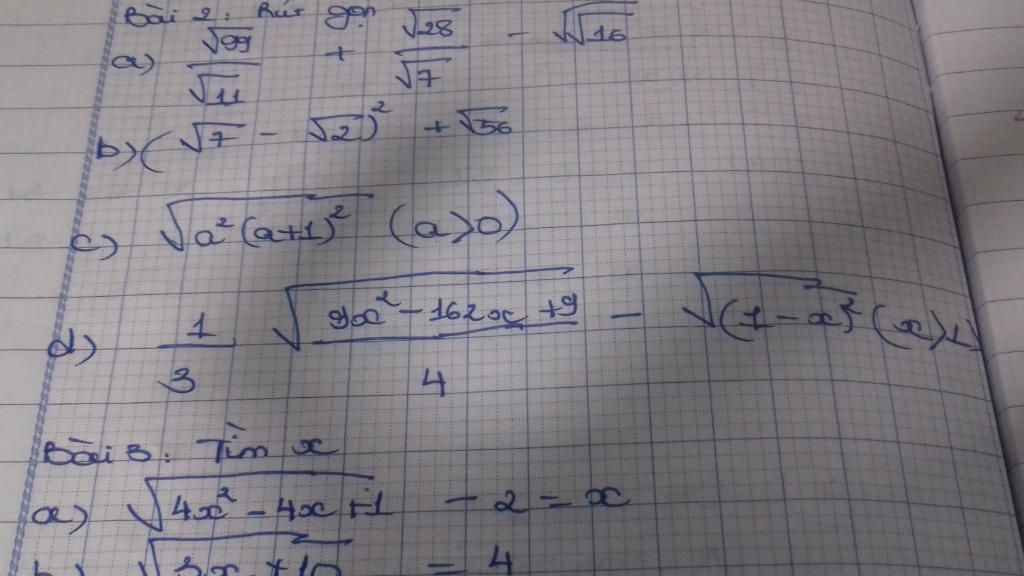 Bài 2: Rút gọn
a) √99/√11 + √28/√7 - √√16
b) (√7 - √2)² + √56
c) √a²(a+1)² (a>0)
d) 1/3 √(9x² - 162x + 9)/4 - √(1-x)² (x>1)
Bài 3: Tìm x
a) √4x² - 4x + 1 - 2 = x
b) √3x + 10 = 4